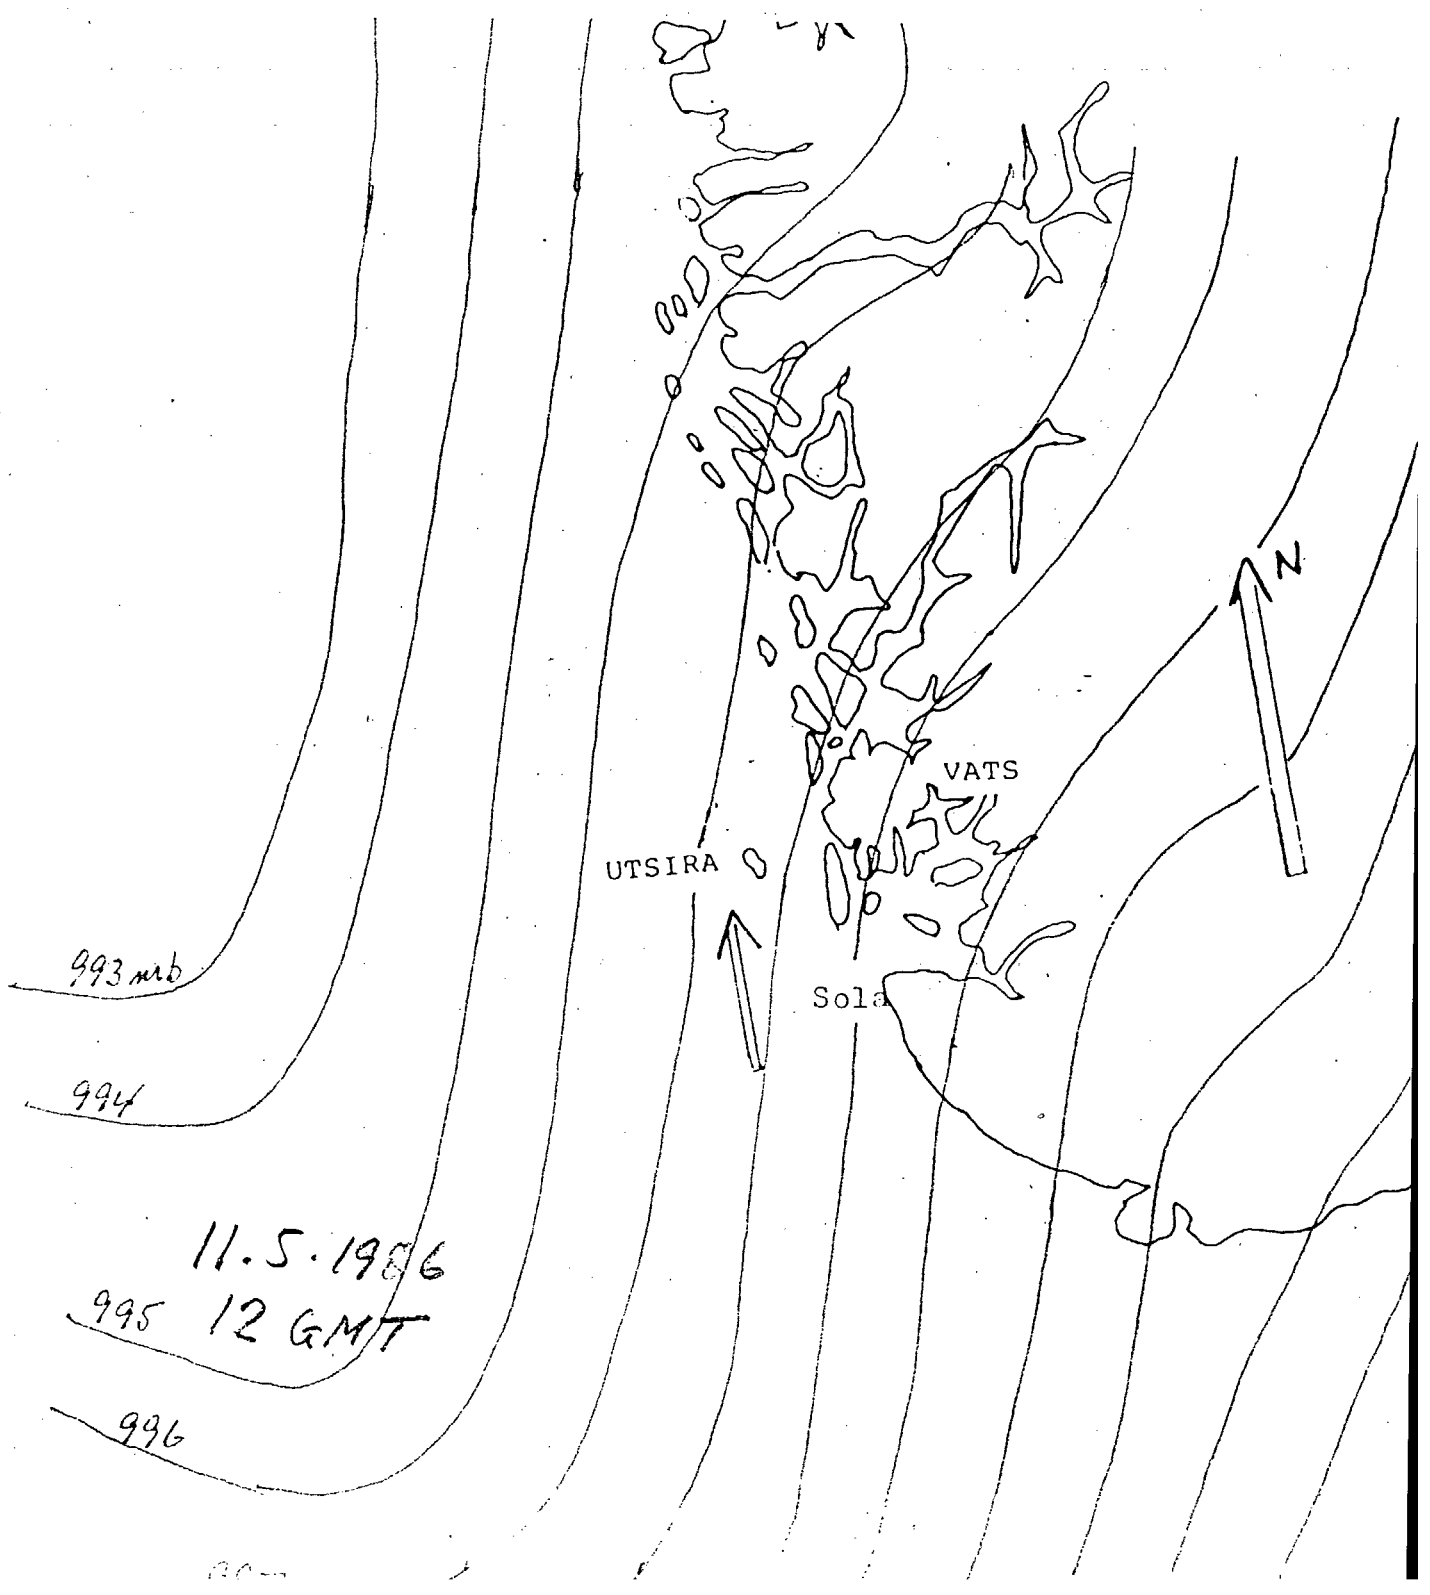 N
VATS
UTSIRA
993 mb
Sola
994
11.5.1986
995 12 GMT
996